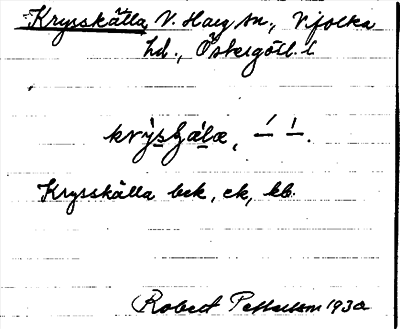 Krysskälla V. Harg sn., Vifolka
hd., Östergötl. l
Krysskälla bek, ek, kb.
Robert Pettersson 1930